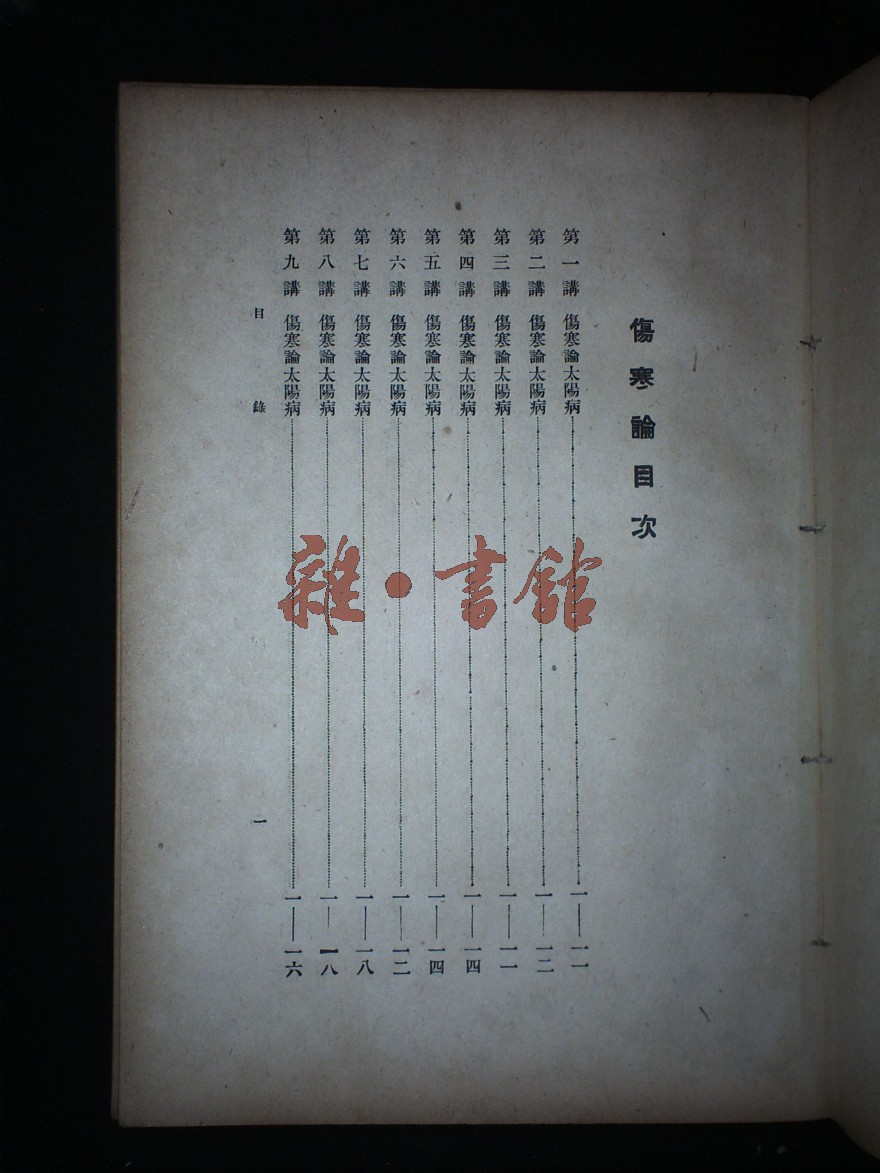 傷寒論目次
第一講 傷寒論太陽病………一——一一
第二講 傷寒論太陽病………一——一二
第三講 傷寒論太陽病………一——一一
第四講 傷寒論太陽病………一——一四
第五講 傷寒論太陽病………一——一四
第六講 傷寒論太陽病………一——一二
第七講 傷寒論太陽病………一——一八
第八講 傷寒論太陽病………一——一八
第九講 傷寒論太陽病………一——一六
目錄 一
雜·書館